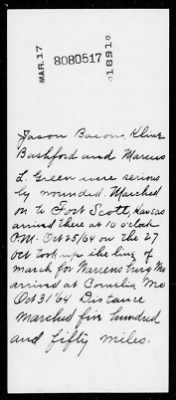 MAR. 17
8080517
1891
Jason Bacon, Klint
Bashford and Marcus
L Green were serious
ly wounded. Marched
on to Fort Scott, Kansas
arrived there at 10 o'clock
P.M. Oct 25/64 on the 27
Oct took up the line of
march for Warrensburg Mo
arrived at Cornelia Mo
Oct 31 '64 Distance
marched five hundred
and fifty miles.